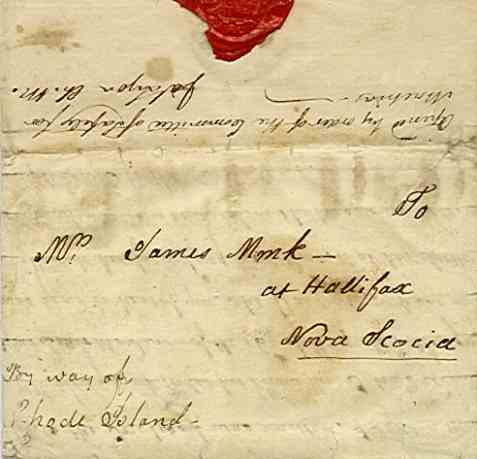 Opend by order of the Committee of Safety for
Machias — Lyon Ch. M.
To
Mr. James Monk —
at Hallifax
Nova Scocia
By way of
Rhode Island